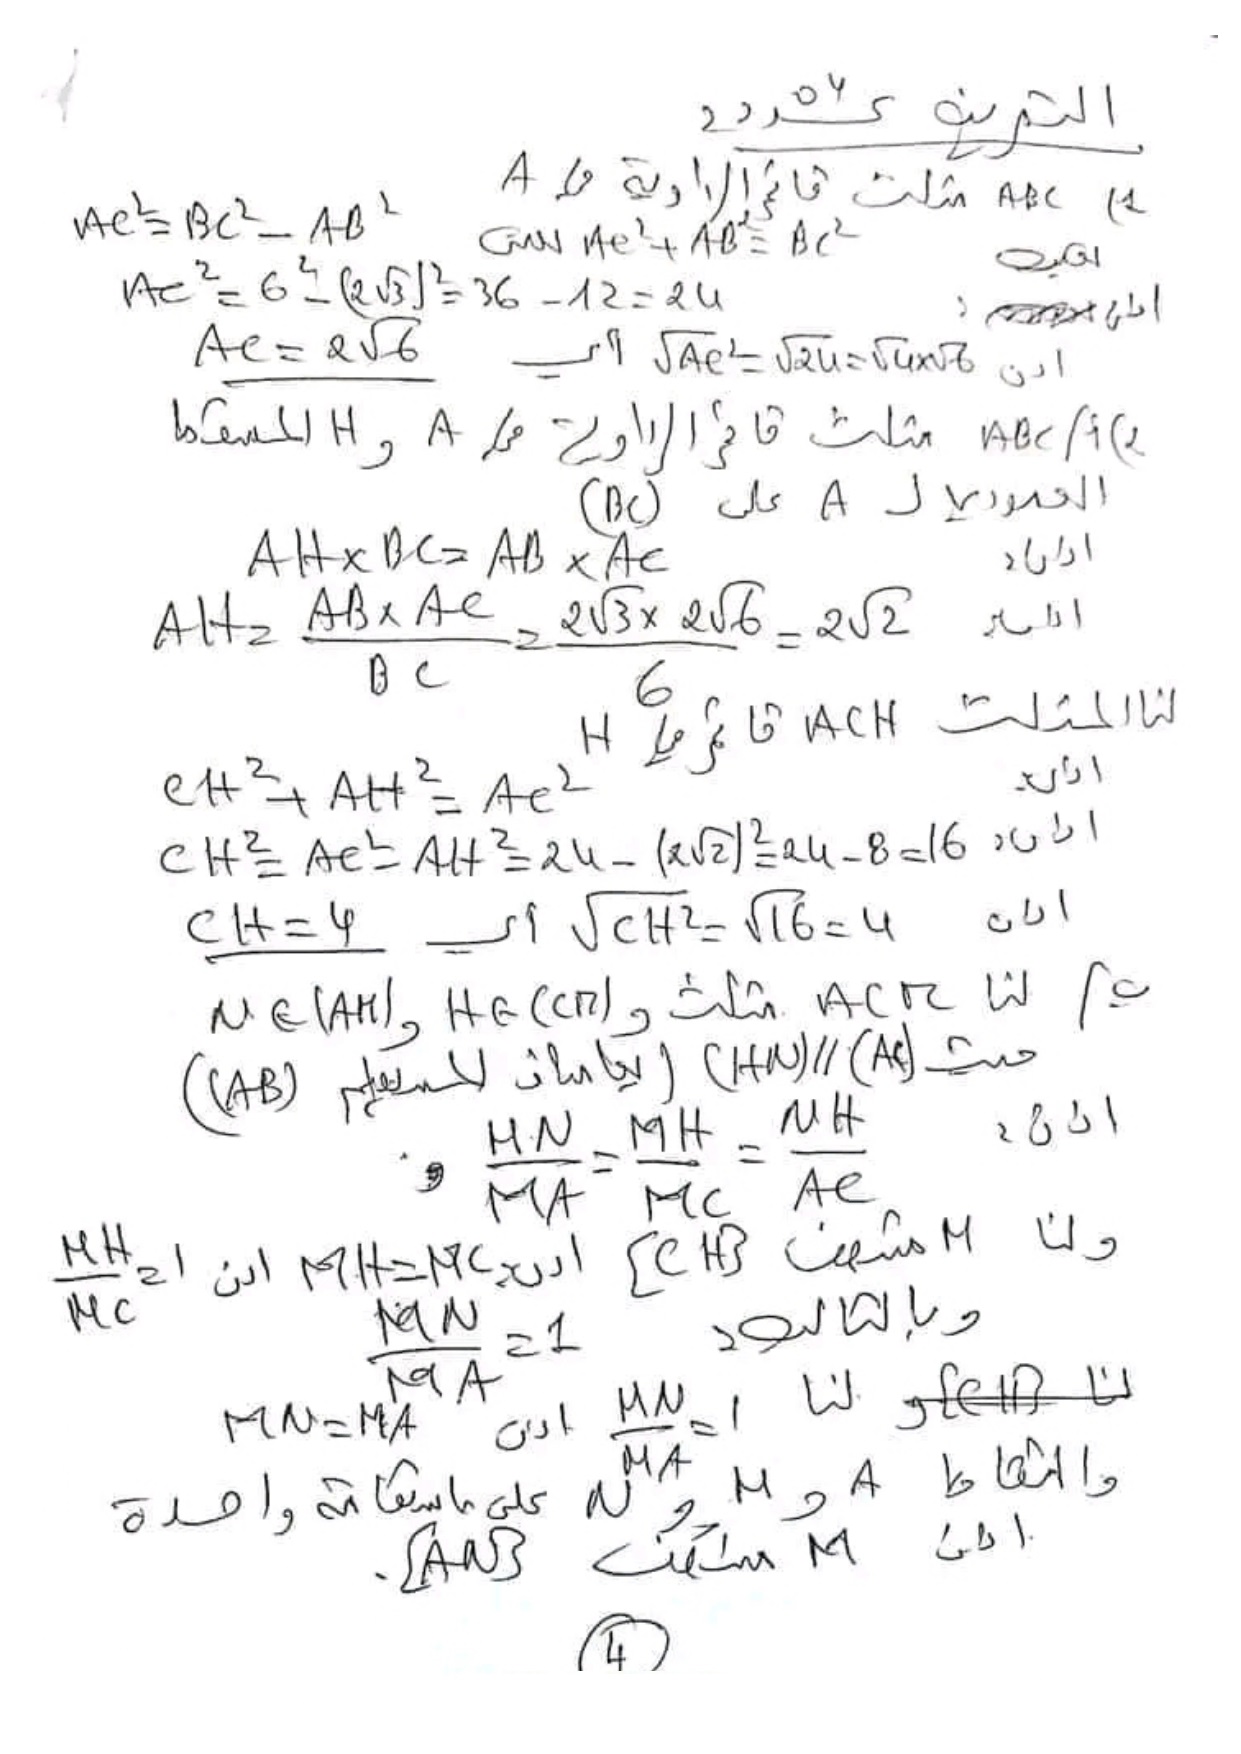 التمرين عـــدد 04
1) ABC مثلث قائم الزاوية في A
حسب AC²+AB²=BC²
AC²=BC²-AB²
اذن: AC²=6²-(2√3)²=36-12=24
اذن √AC²=√24=√4x√6 أي AC=2√6
2) أ/ ABC مثلث قائم الزاوية في A و H المسقط
العمودي لـ A على (BC)
اذن: AHxBC=ABxAC
اذن AH=ABxAC/BC=2√3x2√6/6=2√2
لنا المثلث ACH قائم في H
اذن: CH²+AH²=AC²
اذن: CH²=AC²-AH²=24-(2√2)²=24-8=16
اذن √CH²=√16=4 أي CH=4
ب/ لنا ACM مثلث و H∈(CM) و N∈(AM)
حيث (HN)//(AC) (يعامدان المستقيم (AB))
اذن: MN/MA=MH/MC=NH/AC
ولنا M منتصف [CH] اذن: MH=MC اذن MH/MC=1
وبالتالي: MN/MA=1
لنا [CH] و لنا MN/MA=1 اذن MN=MA
والنقاط A و M و N على استقامة واحدة
اذن M منتصف [AN].
4